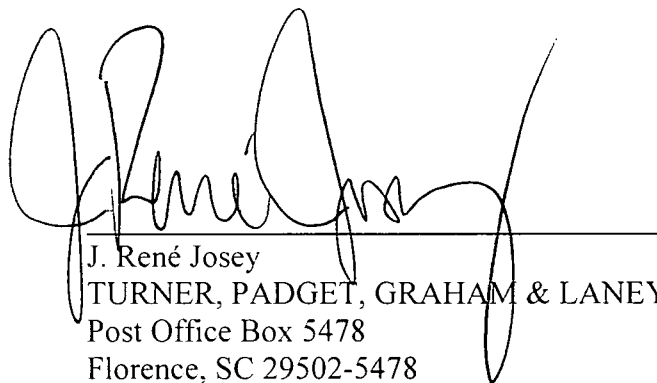 J. René Josey
J. René Josey
TURNER, PADGET, GRAHAM & LANEY
Post Office Box 5478
Florence, SC 29502-5478